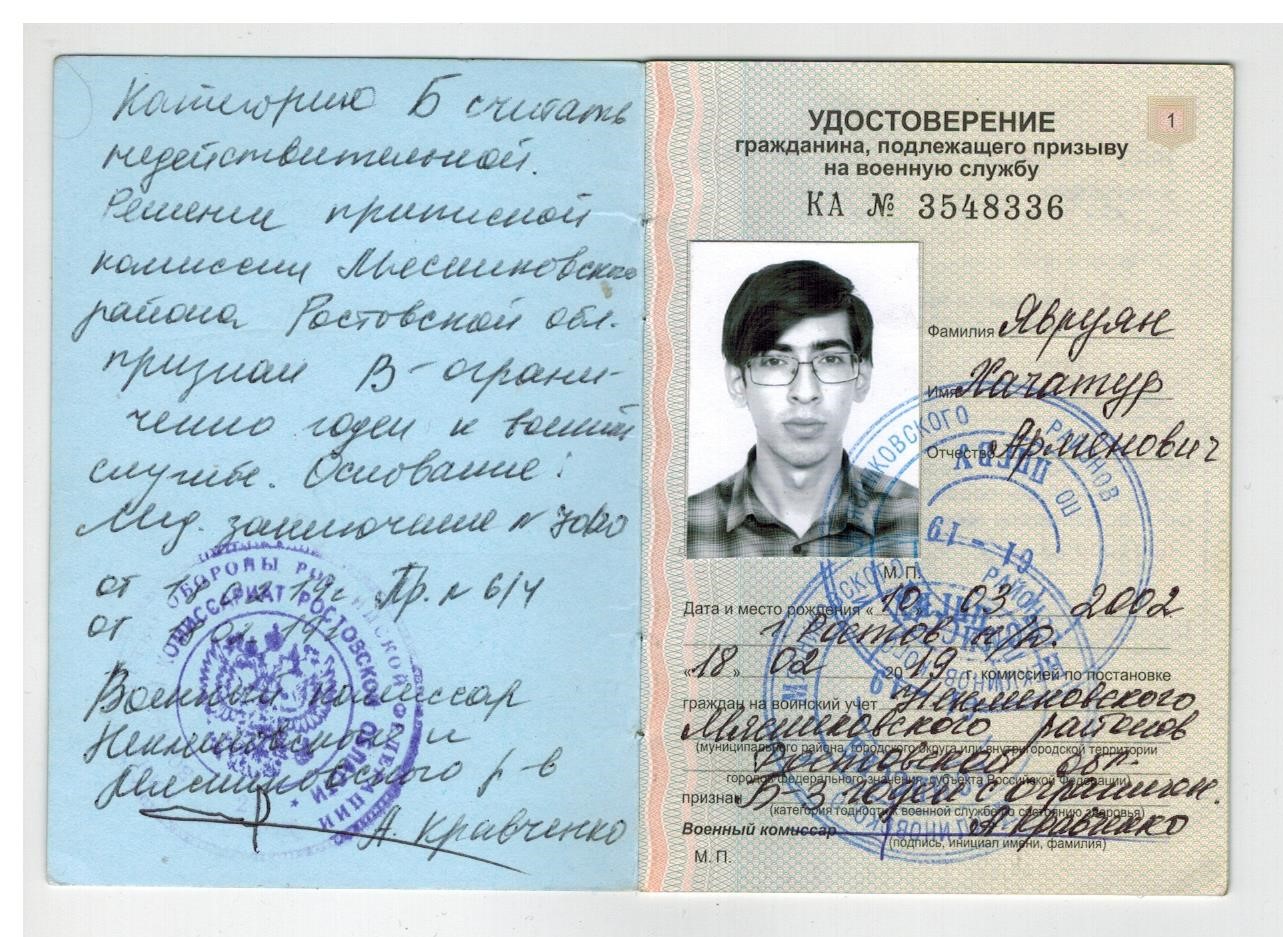 Категорию Б считать
недействительной.
Решением приписной
комиссии Мясниковского
района Ростовской обл.
признан В - ограни-
ченно годен к военной
службе. Основание:
Мед. заключение №
от 19г. Пр. № 6/4
от 19г.
Военный комиссар
Неклиновского и
Мясниковского р-в
А. Кравченко
КОМИССАРИАТ РОСТОВСКОЙ ОБЛАСТИ
1
УДОСТОВЕРЕНИЕ
гражданина, подлежащего призыву
на военную службу
КА № 3548336
Фамилия Явруян
Имя Хачатур
Отчество Арменович
М. П.
Дата и место рождения « 10 » 03 2002
г. Ростов н/Д.
« 18 » 02 20 19 г. комиссией по постановке
граждан на воинский учет Неклиновского
Мясниковского районов
(муниципального района, городского округа или внутригородской территории
Ростовской обл.
города федерального значения, субъекта Российской Федерации)
признан Б-3 годен с огранич.
(категория годности к военной службе по состоянию здоровья)
Военный комиссар А Кравченко
(подпись, инициал имени, фамилия)
М. П.